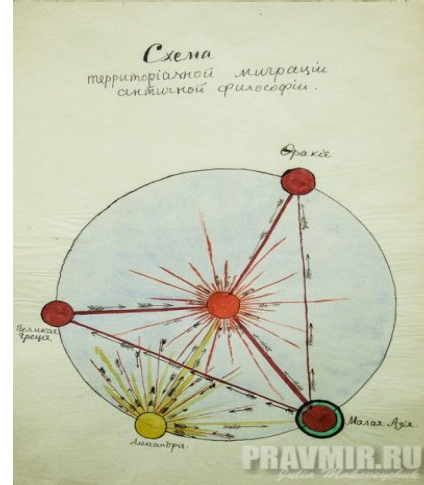 Схема
территоріальной миграціи
античной философіи.
Ѳракія
Великая
Греція.
Малая Азія.
Александрія.
PRAVMIR.RU
Julia Makoveychuk